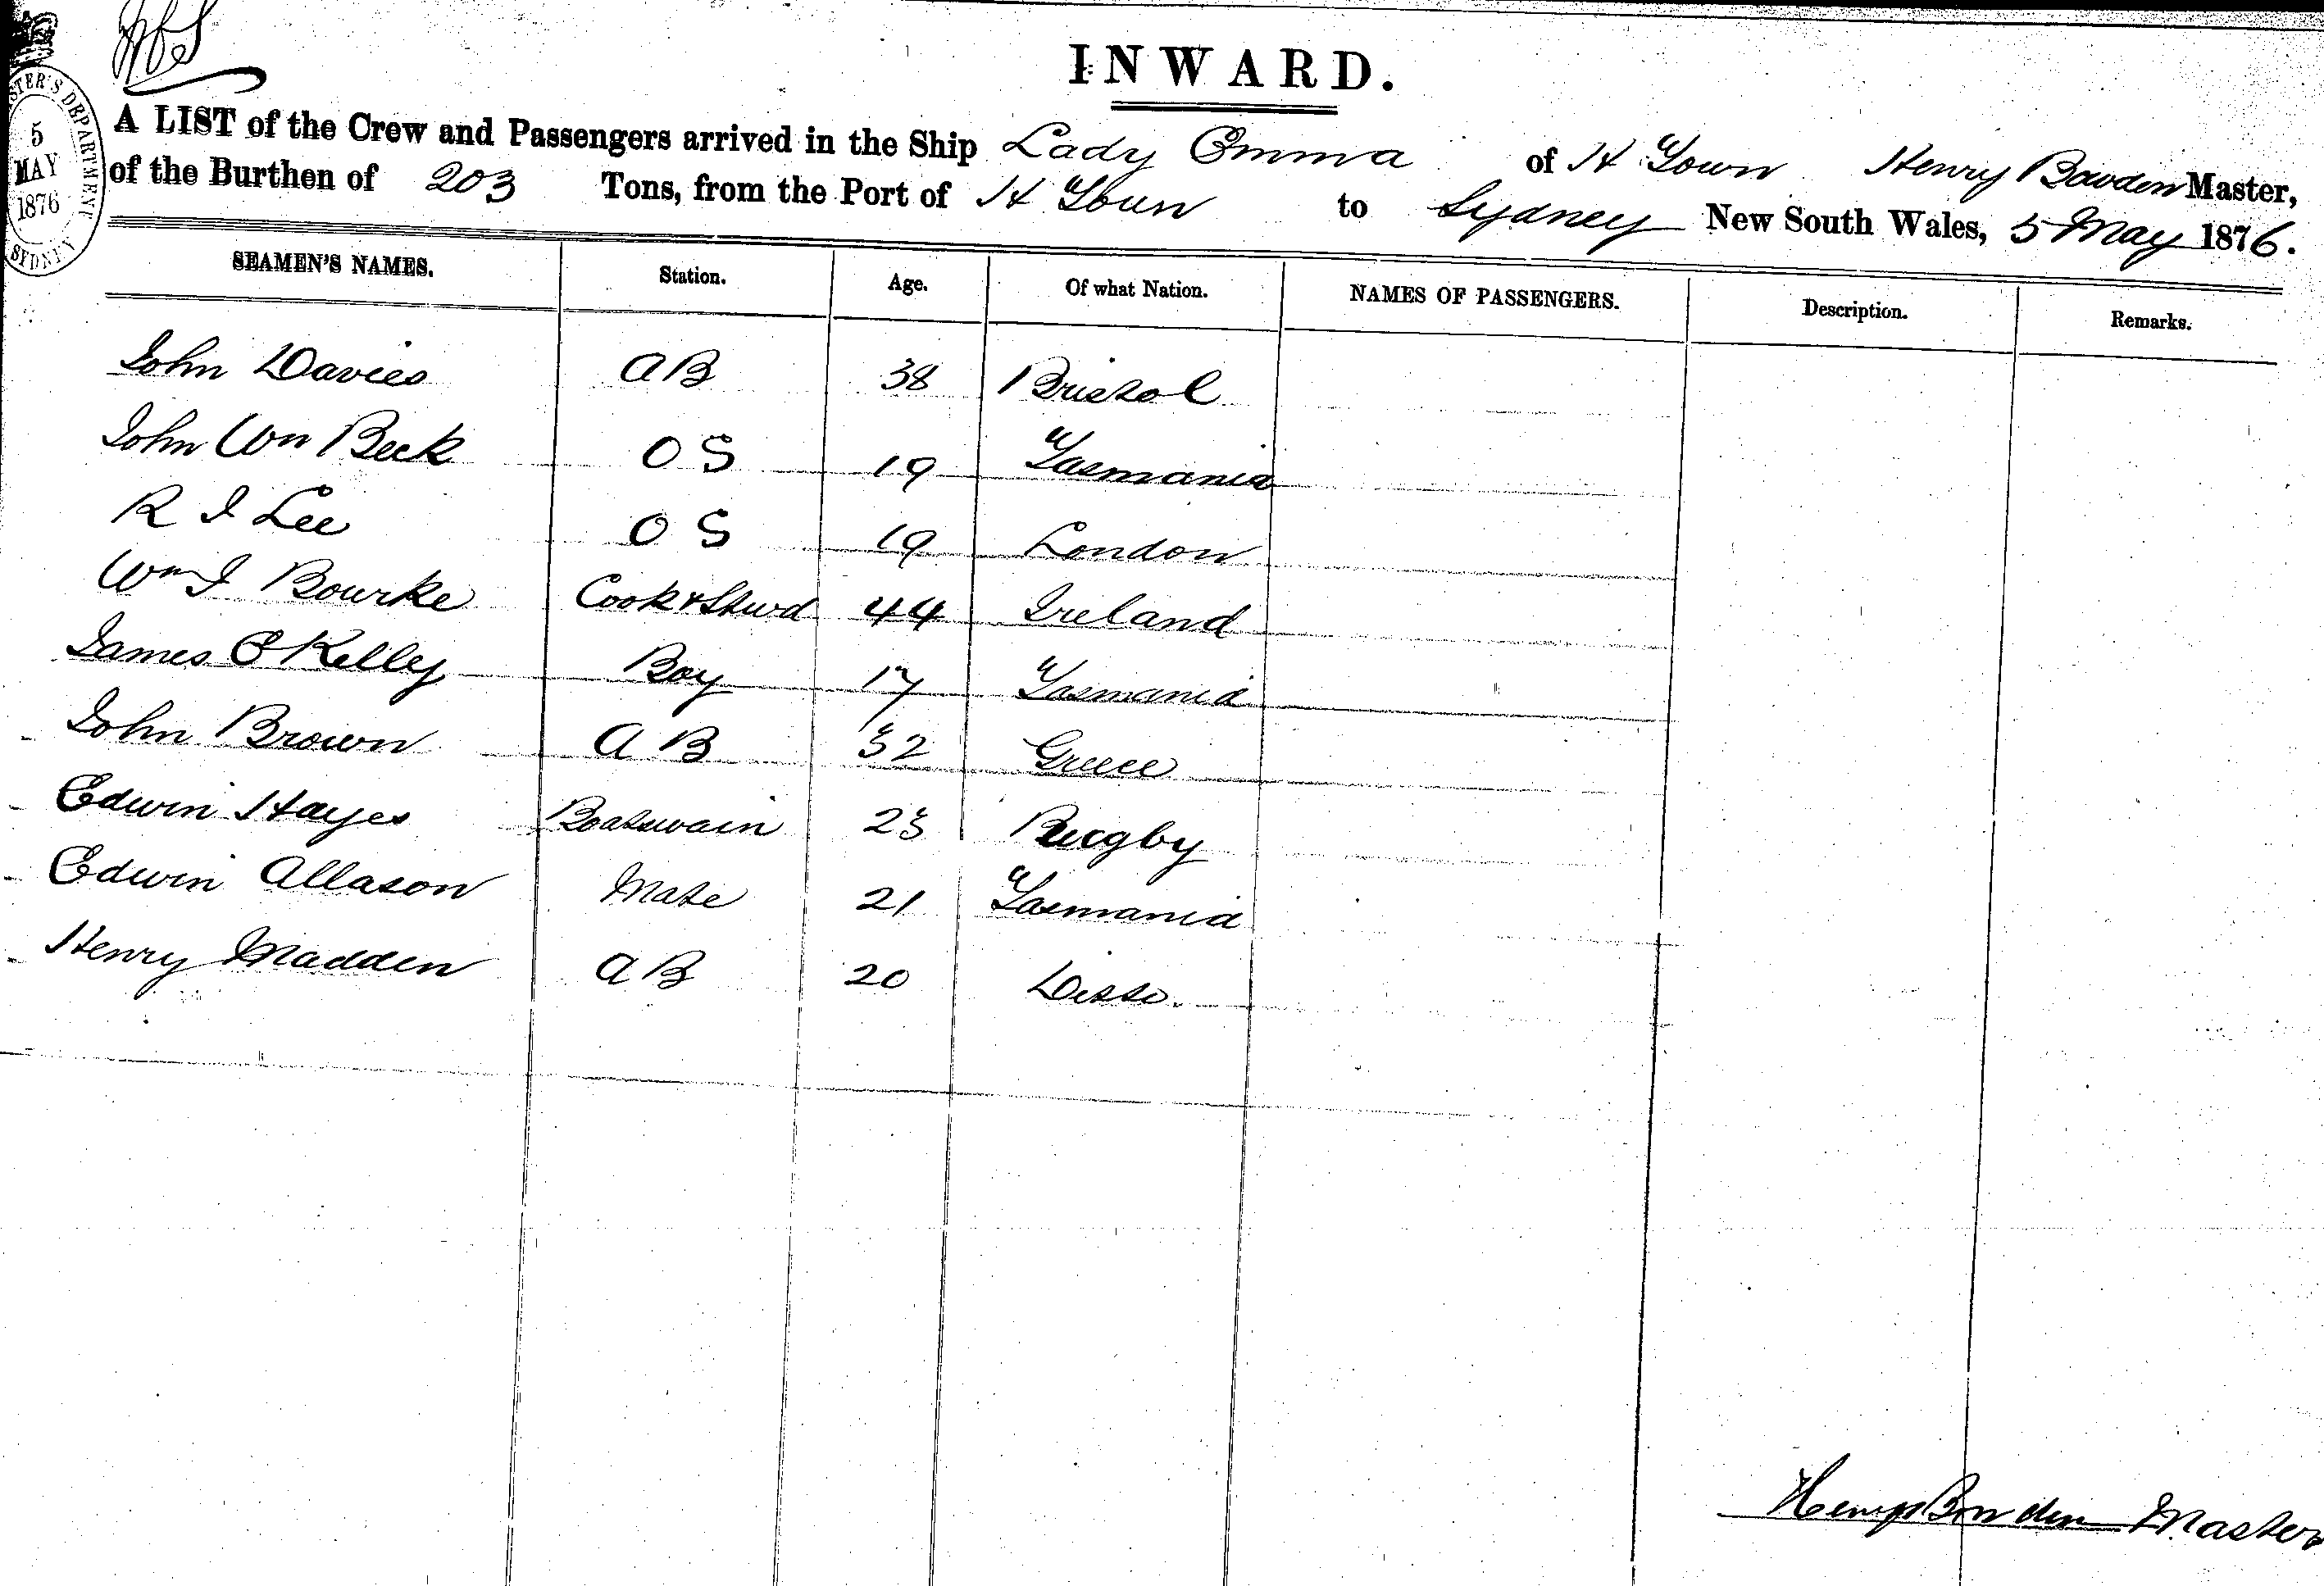 INWARD.
A LIST of the Crew and Passengers arrived in the Ship Lady Emma of H Town Henry Bowden Master,
of the Burthen of 203 Tons, from the Port of H Town to Sydney New South Wales, 5 May 1876.
MASTER'S DEPARTMENT
5
MAY
1876
SYDNEY
SEAMEN'S NAMES. Station. Age. Of what Nation. NAMES OF PASSENGERS. Description. Remarks.
John Davies A B 38 Bristol
John Wm Beck O S 19 Tasmania
R J Lee O S 19 London
Wm J Bourke Cook & Stwd 44 Ireland
James O Kelly Boy 17 Tasmania
John Brown A B 32 Greece
Edwin Hayes Boatswain 23 Rugby
Edwin Allason Mate 21 Tasmania
Henry Madden A B 20 Ditto.
Henry Bowden Master